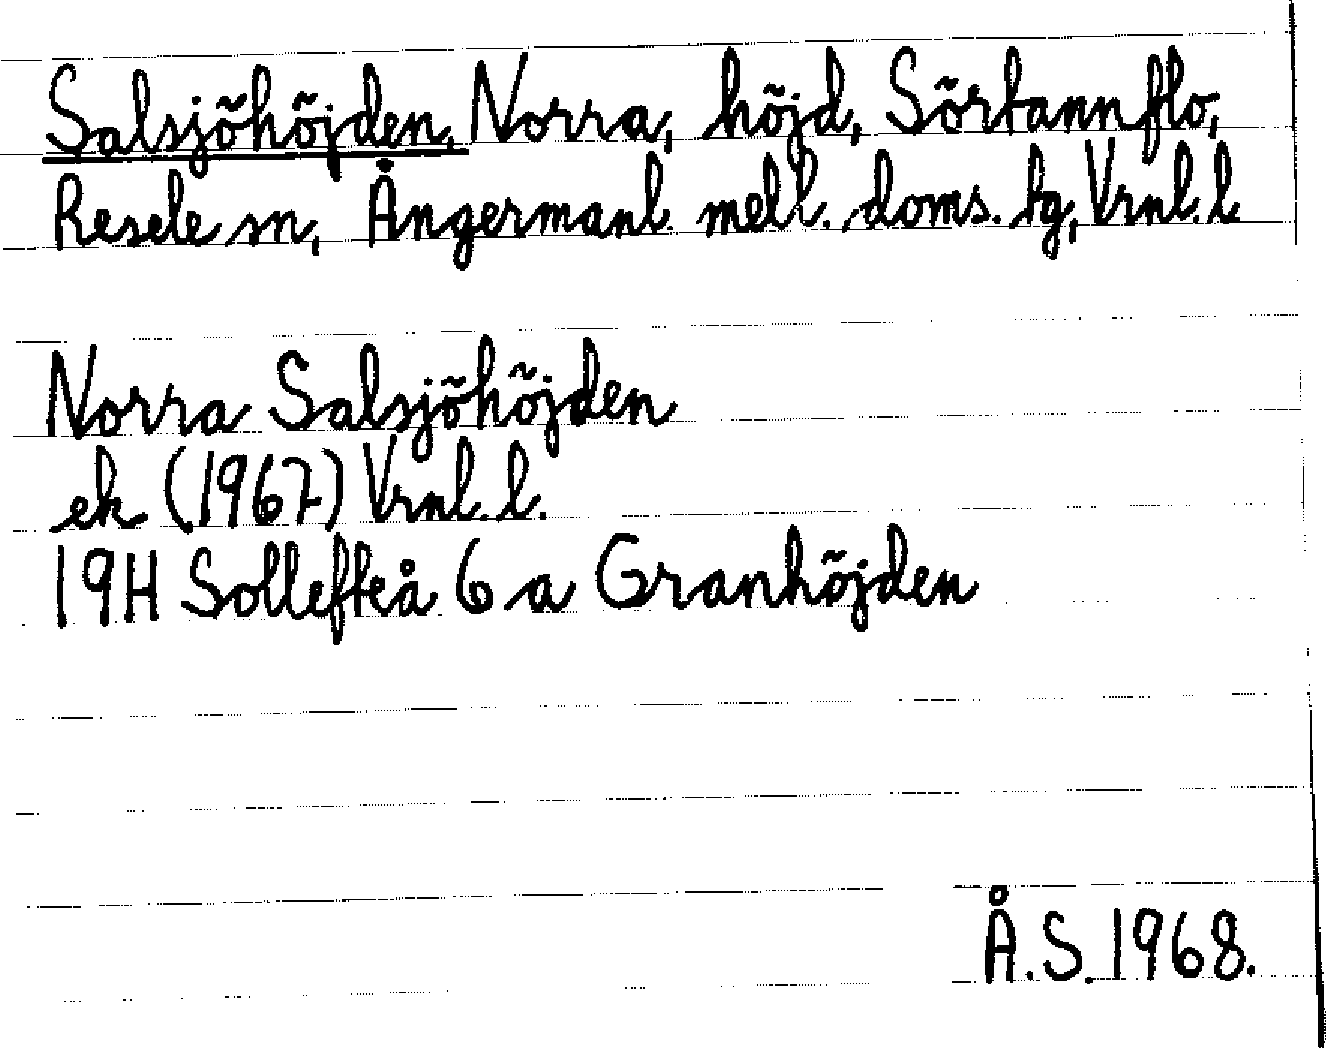 Salsjöhöjden, Norra, höjd, Sörtannflo,
Resele sn, Ångermanl. mell. doms. tg, Vrnl. l.
Norra Salsjöhöjden
ek (1967) Vrnl. l.
19H Sollefteå 6 a Granhöjden
Å.S. 1968.